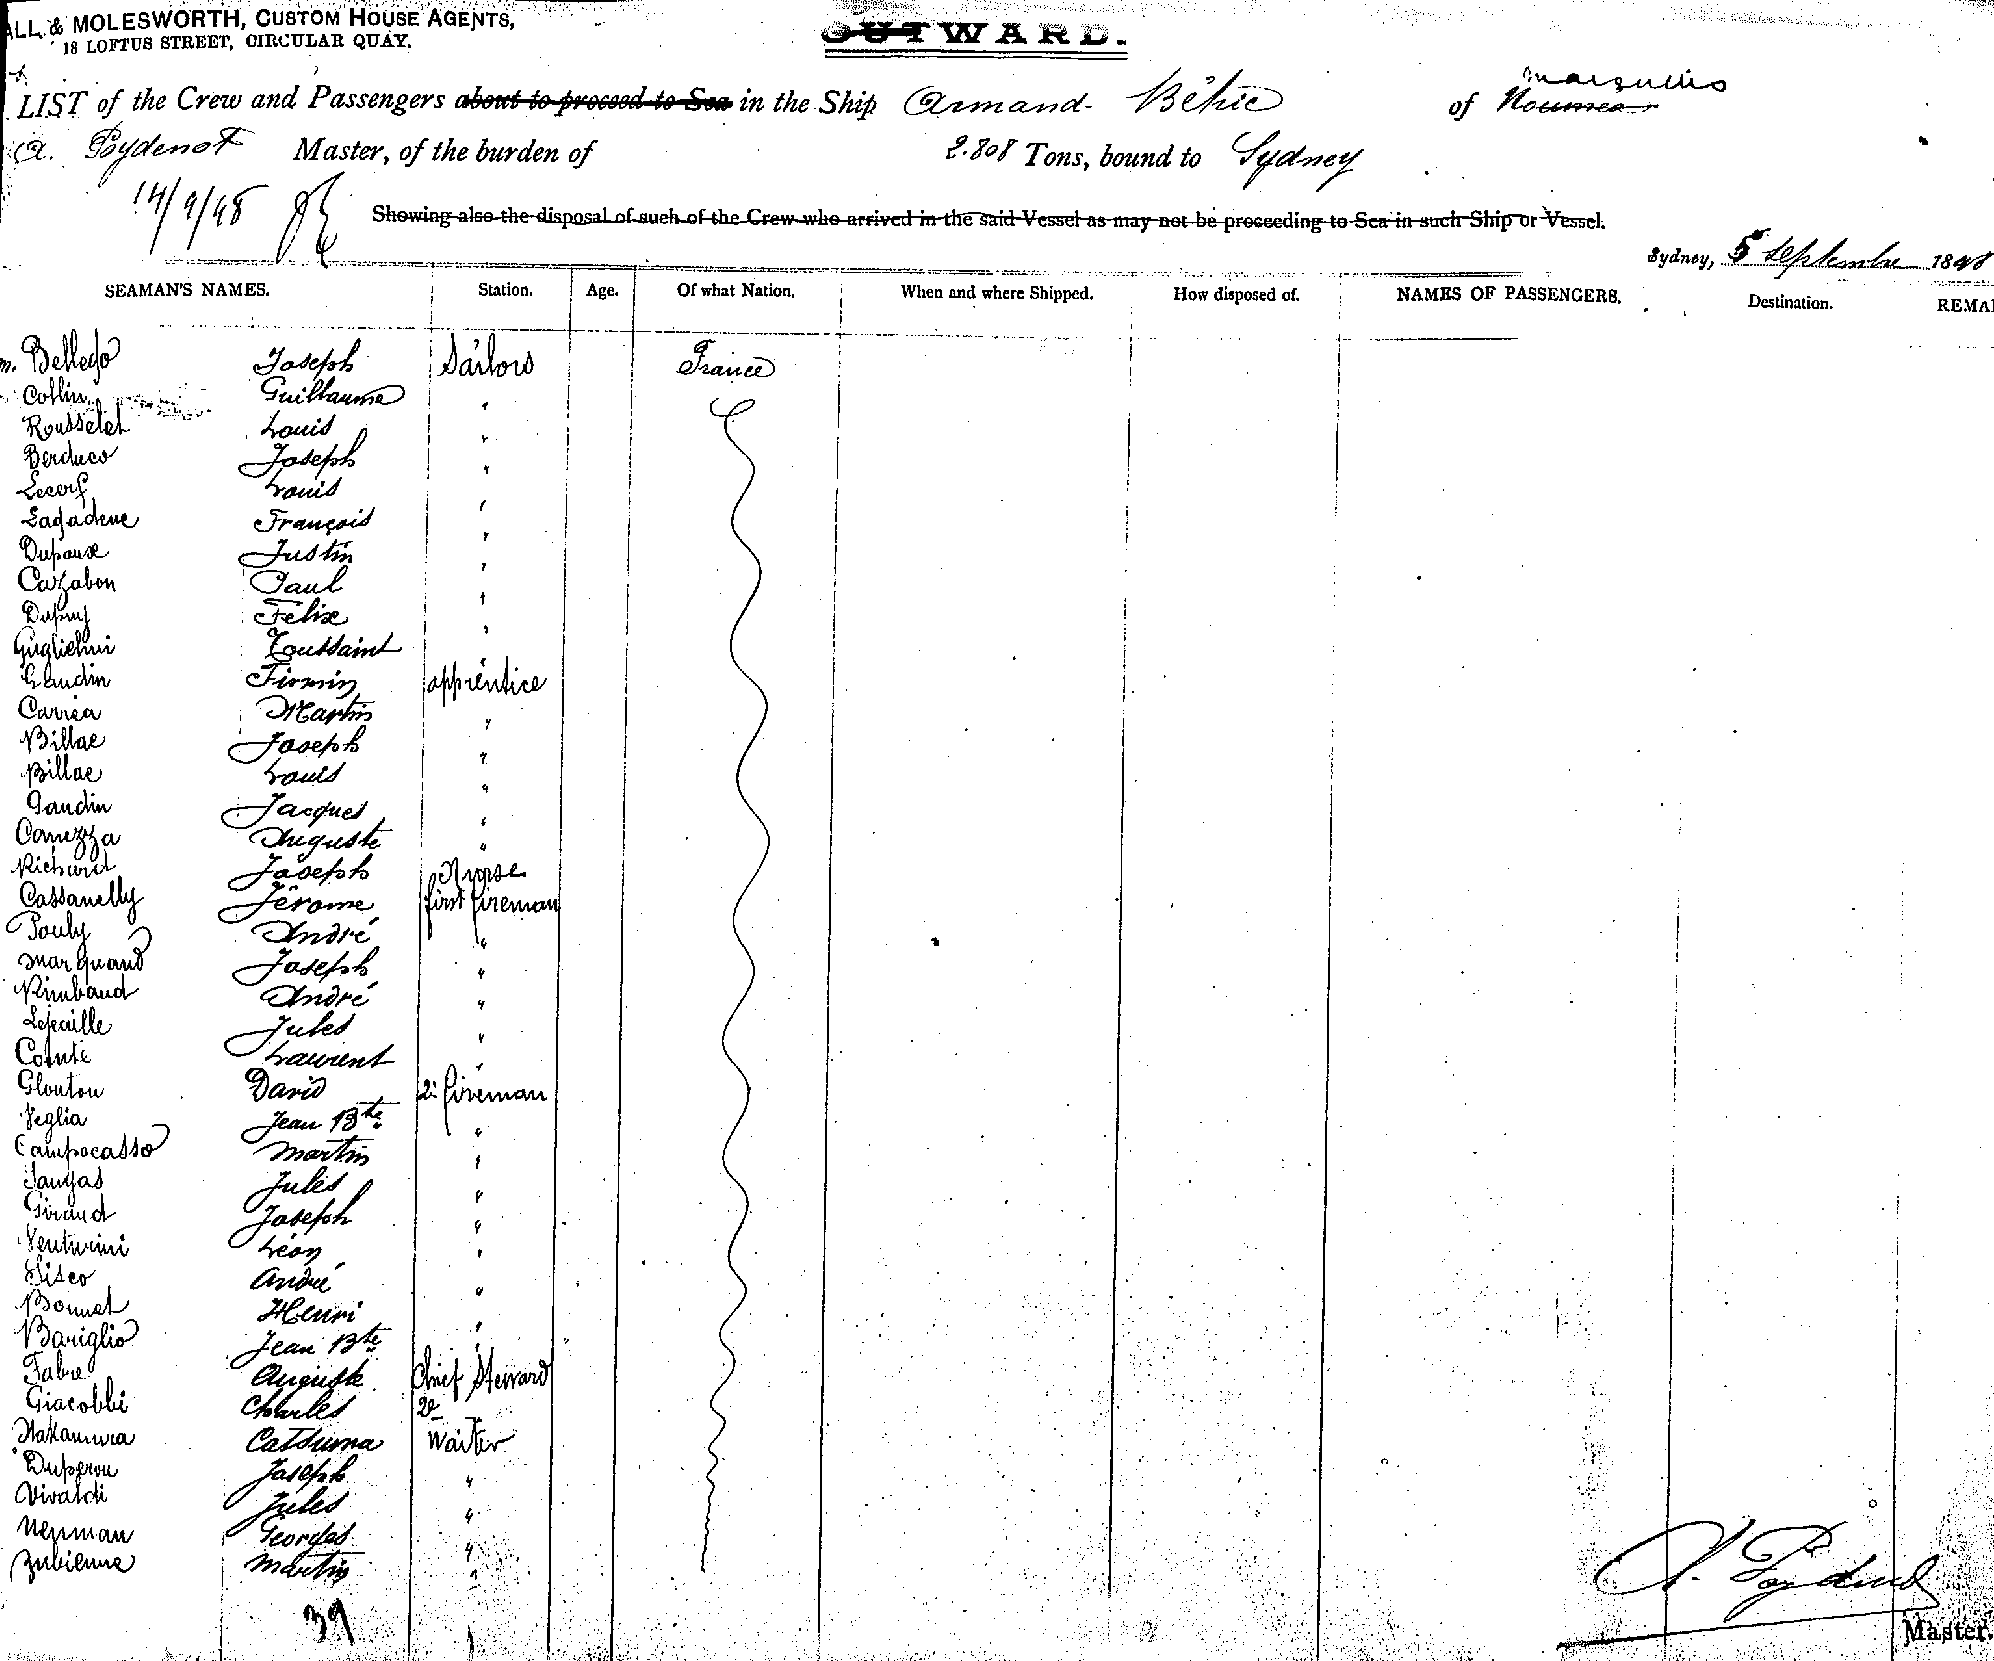 ALL & MOLESWORTH, CUSTOM HOUSE AGENTS,
18 LOFTUS STREET, CIRCULAR QUAY.
OUTWARD.
LIST of the Crew and Passengers about to proceed to Sea in the Ship Armand Béhic of Noumea Marseilles
A. Poydenot Master, of the burden of 2.808 Tons, bound to Sydney
14/9/98
Showing also the disposal of such of the Crew who arrived in the said Vessel as may not be proceeding to Sea in such Ship or Vessel.
Sydney, 5 Septembre 1898
SEAMAN'S NAMES. Station. Age. Of what Nation. When and where Shipped. How disposed of. NAMES OF PASSENGERS. Destination. REMA
m. Bellego Joseph Sailors France
Collin Guillaume "
Rousselet Louis "
Berduco Joseph "
Lecerf Louis "
Lagadene François "
Dupouse Justin "
Cazabon Paul "
Dupuy Félix "
Guglielmi Toussaint "
Gaudin Firmin apprentice
Carréa Martin "
Billac Joseph "
Billac Louis "
Gaudin Jacques "
Canuzza Auguste "
Richard Joseph Nurse
Cassanelly Jérome first fireman
Pouly André "
Marquand Joseph "
Rimbaud André "
Lepaille Jules "
Comte Laurent "
Glouton David 2e fireman
Veglia Jean Bte "
Campocasso Martin "
Jaugas Jules "
Giraud Joseph "
Venturini Léon "
Sisco André "
Bonnet Henri "
Bariglio Jean Bte "
Fabre Auguste Chief Steward
Giacobbi Charles 2e
Nakamura Catsuma Waiter
Duperou Joseph "
Vivaldi Jules "
Neuman Georges "
Zubienne Martin "
39
A. Poydenot
Master.